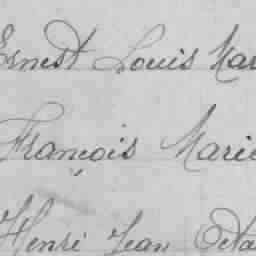 Ernest Louis Mar
François Marie
Henri Jean Octa